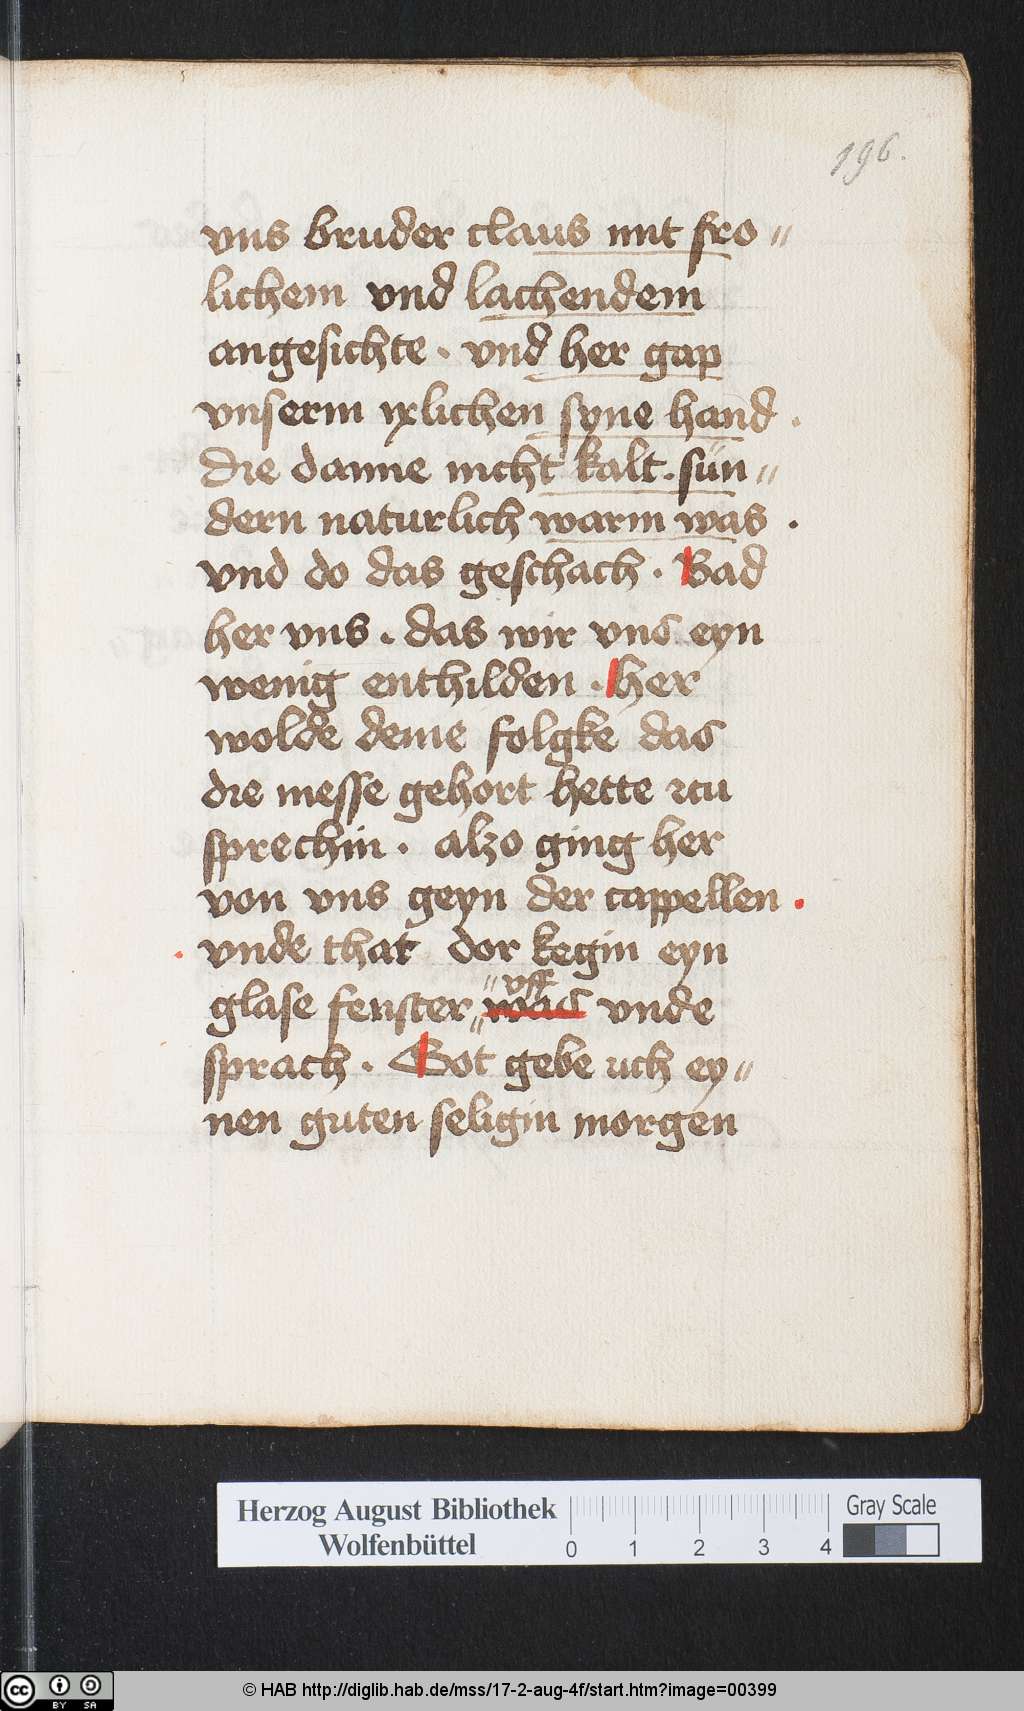 196.
vns bruder claus mit fro〃
lichem vnd lachendem
angesichte · vnd her gap
vnserm ixlichen syne hand ·
die danne nicht kalt · sün〃
dern naturlich warm was ·
vnd do das geschach · Bad
her vns · das wir vns eyn
wenig enthilden · her
wolde deme folgke das
die messe gehort hette zcu
sprechin · alzo ging her
von vns geyn der cappellen ·
· vnde that dor kegin eyn
glase fenster 〃 vff 〃 was vnde
sprach · Got gebe uch ey〃
nen guten seligin morgen
Herzog August Bibliothek
Wolfenbüttel
0 1 2 3 4
Gray Scale
cc BY SA
© HAB http://diglib.hab.de/mss/17-2-aug-4f/start.htm?image=00399